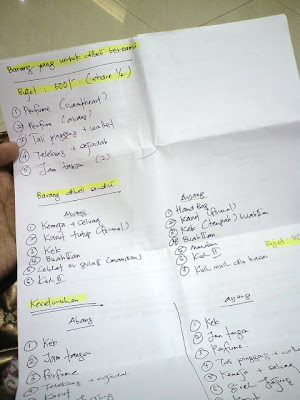 Barang yang untuk dibeli bersama
Bajet : 500/- (share 1/2)
① Perfume (sweetheart)
② Perfume (abang)
③ Tali pinggang + wallet
④ Telekung + sejadah
⑤ Jam tangan (2)
Barang dibeli sendiri
Abang
① Kemeja + seluar
② Kasut tutup (formal)
③ Kek
④ Buahan
⑤ Coklat or gula II (manisan)
⑥ Kek II
Ayang
① Hand Bag
② Kasut (formal)
③ Kek (tempah)
④ Buahan
⑤ Manisan
⑥ Kek II
Bajet :
Keseluruhan
Abang
① Kek
② Jam tangan
③ Perfume
④ Telekung + sejadah
⑤ Kasut
Ayang
① Kek
② Jam tangan
③ Perfume
④ Tali pinggang +
⑤ Kemeja + seluar